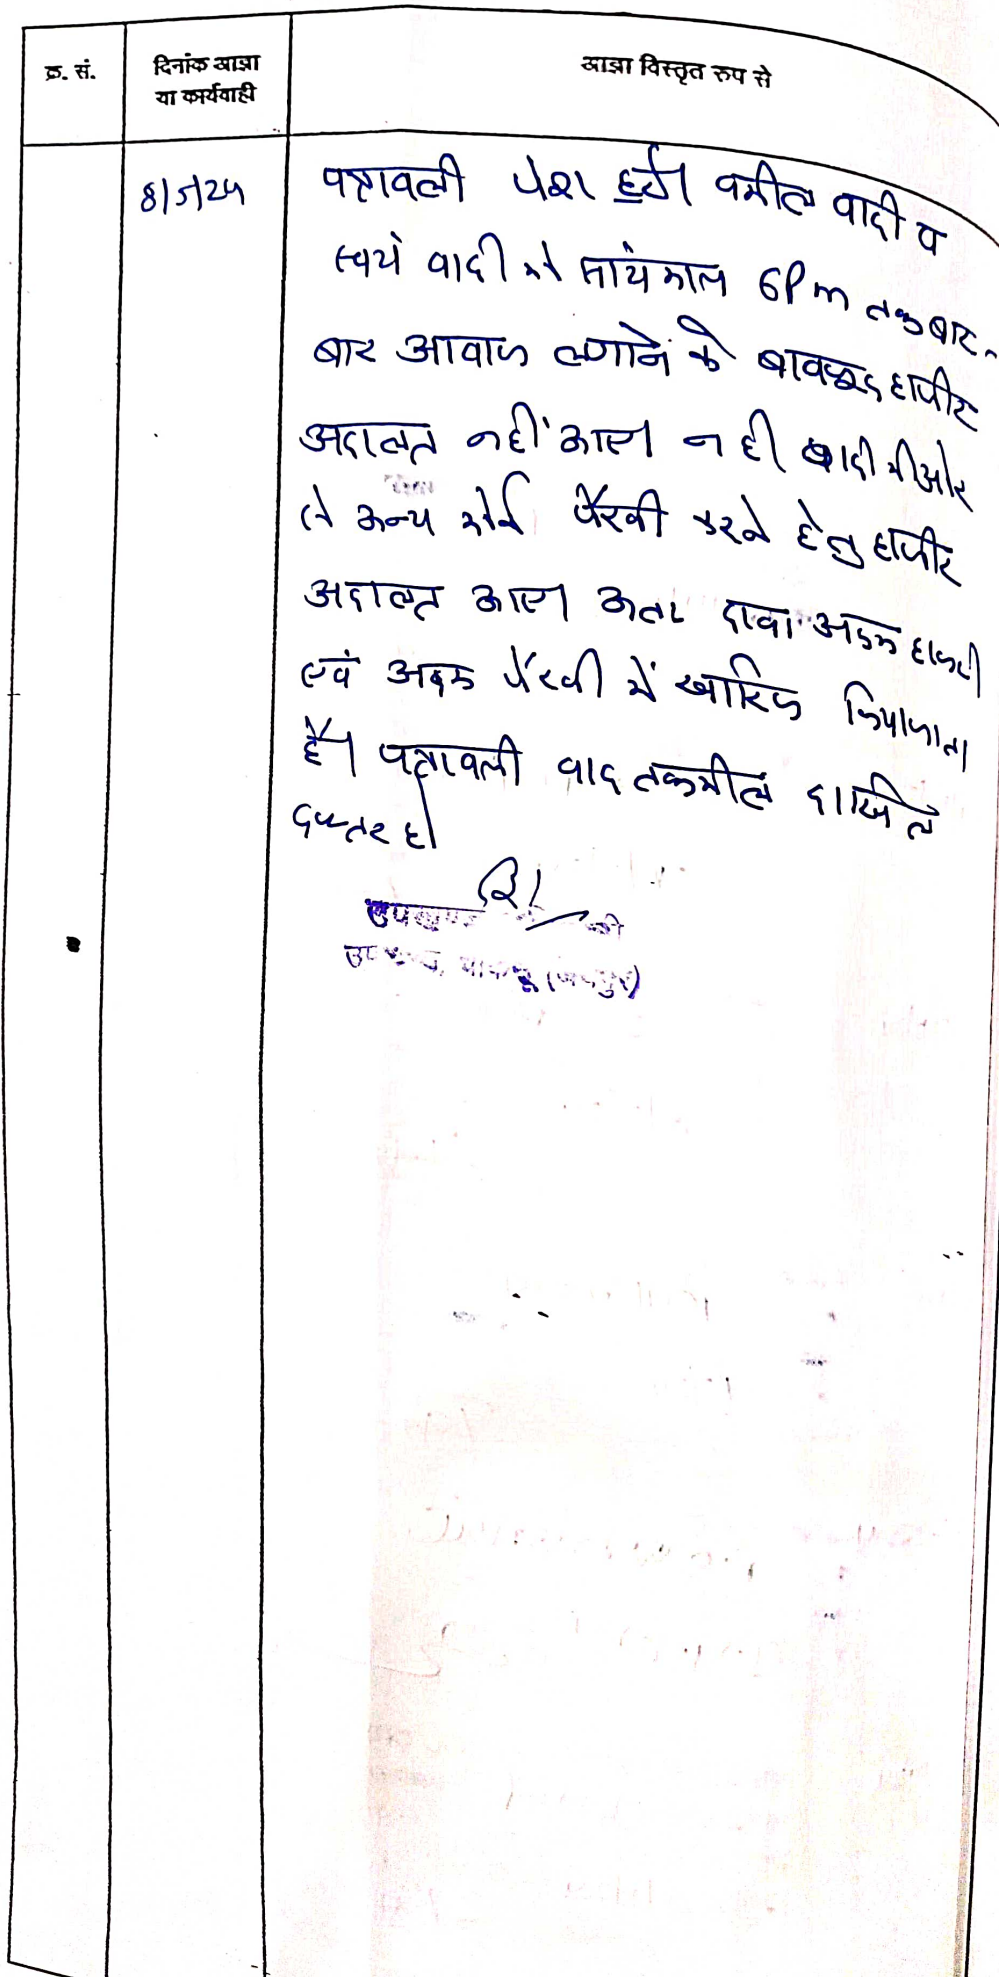 क्र. सं.
दिनांक आज्ञा
या कार्यवाही
आज्ञा विस्तृत रुप से
8/5/24
पत्रावली पेश हुई। वकील वादी व
स्वयं वादी को सायंकाल 6Pm तक बार-
बार आवाज लगाने के बावजूद हाजीर
अदालत नहीं आए। न ही वादी की ओर
से अन्य कोई पैरवी करने हेतु हाजीर
अदालत आए। अतः दावा अदम हाजरी
एवं अदम पैरवी में खारिज किया जाता
है। पत्रावली वाद तकमील दाखिल
दफ्तर हो
उपखण्ड
(जयपुर)